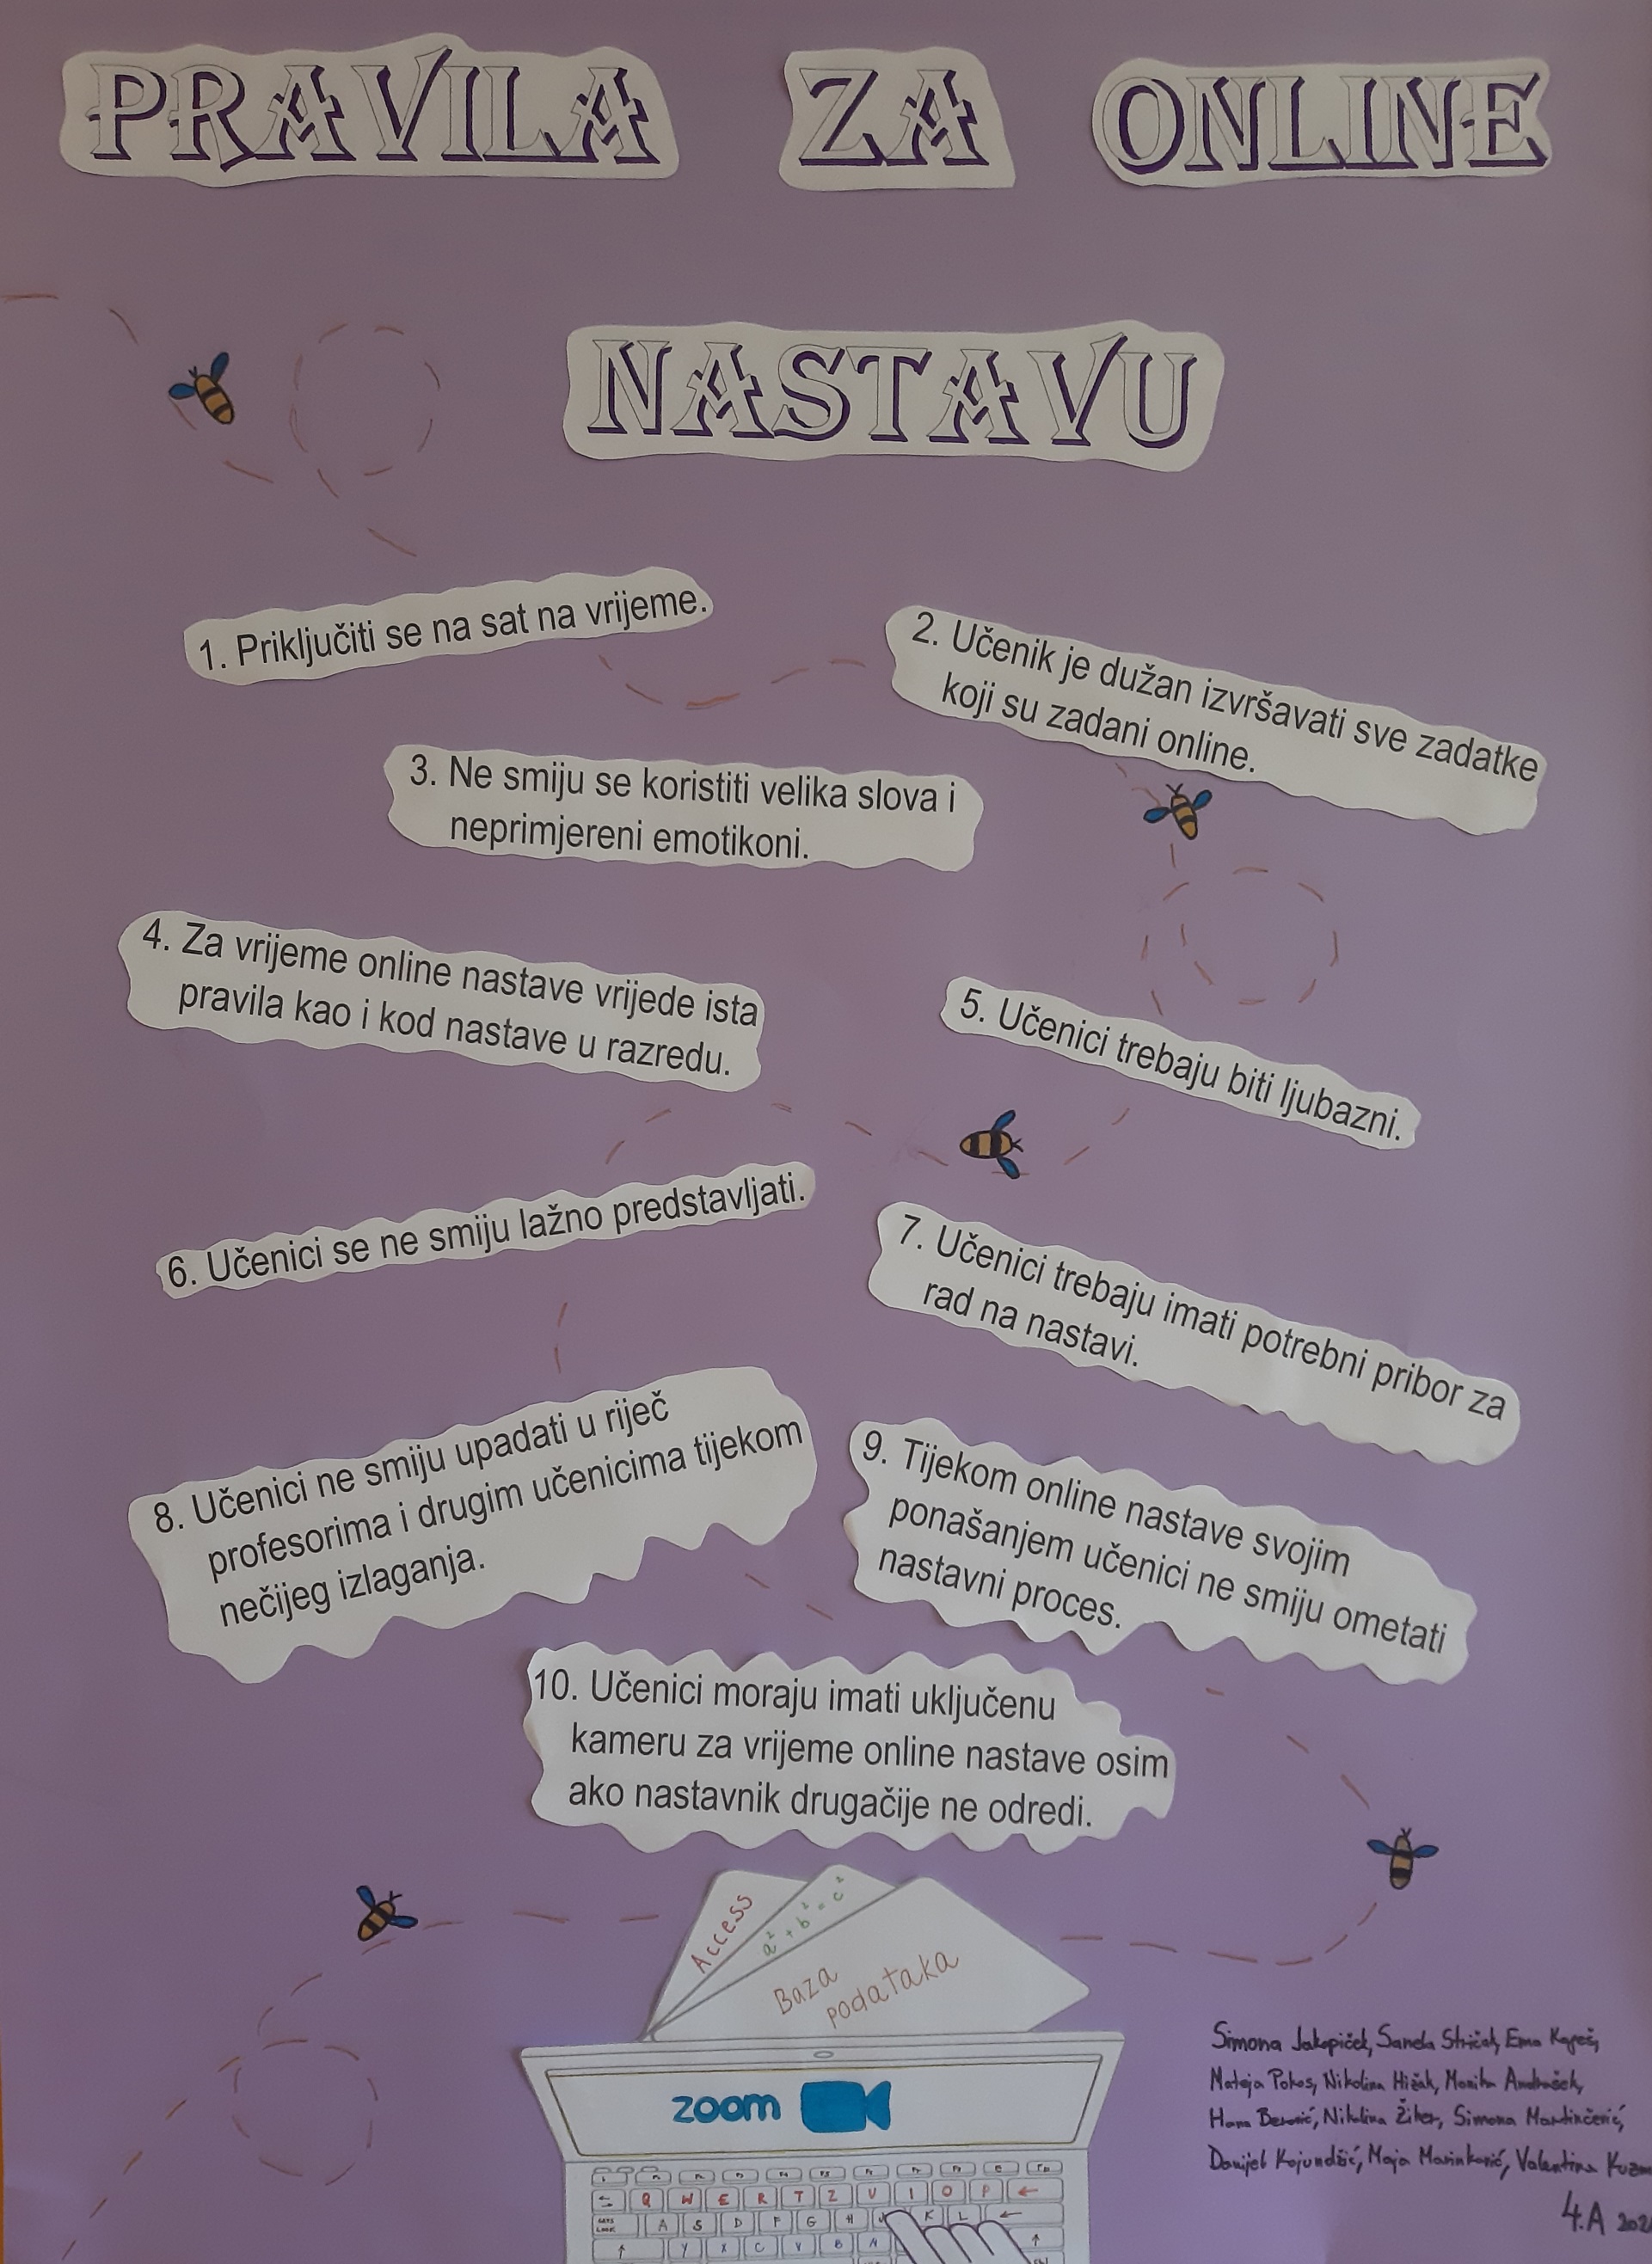 PRAVILA ZA ONLINE
NASTAVU
1. Priključiti se na sat na vrijeme.
2. Učenik je dužan izvršavati sve zadatke
koji su zadani online.
3. Ne smiju se koristiti velika slova i
neprimjereni emotikoni.
4. Za vrijeme online nastave vrijede ista
pravila kao i kod nastave u razredu.
5. Učenici trebaju biti ljubazni.
6. Učenici se ne smiju lažno predstavljati.
7. Učenici trebaju imati potrebni pribor za
rad na nastavi.
8. Učenici ne smiju upadati u riječ
profesorima i drugim učenicima tijekom
nečijeg izlaganja.
9. Tijekom online nastave svojim
ponašanjem učenici ne smiju ometati
nastavni proces.
10. Učenici moraju imati uključenu
kameru za vrijeme online nastave osim
ako nastavnik drugačije ne odredi.
Access
a² + b² = c²
Baza
podataka
zoom
Q W E R T Z U I O P
A S D F G H J K L
Y X C V B N
Simona Jakopiček, Sanela Stričak, Ema
Mateja Pokos, Nikolina Hižak, Monika Andrašek,
Nikolina Žiher, Simona Martinčević,
Danijel Kojundžić, Maja Marinković, Valentina
4.A